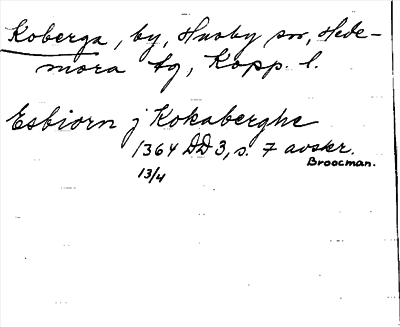 Koberga, by, Husby sn, Hede-
mora tg, Kopp. l.
Esbiorn j Kokaberghe
1364 DD 3, s. 7 avskr.
Broocman.
13/4